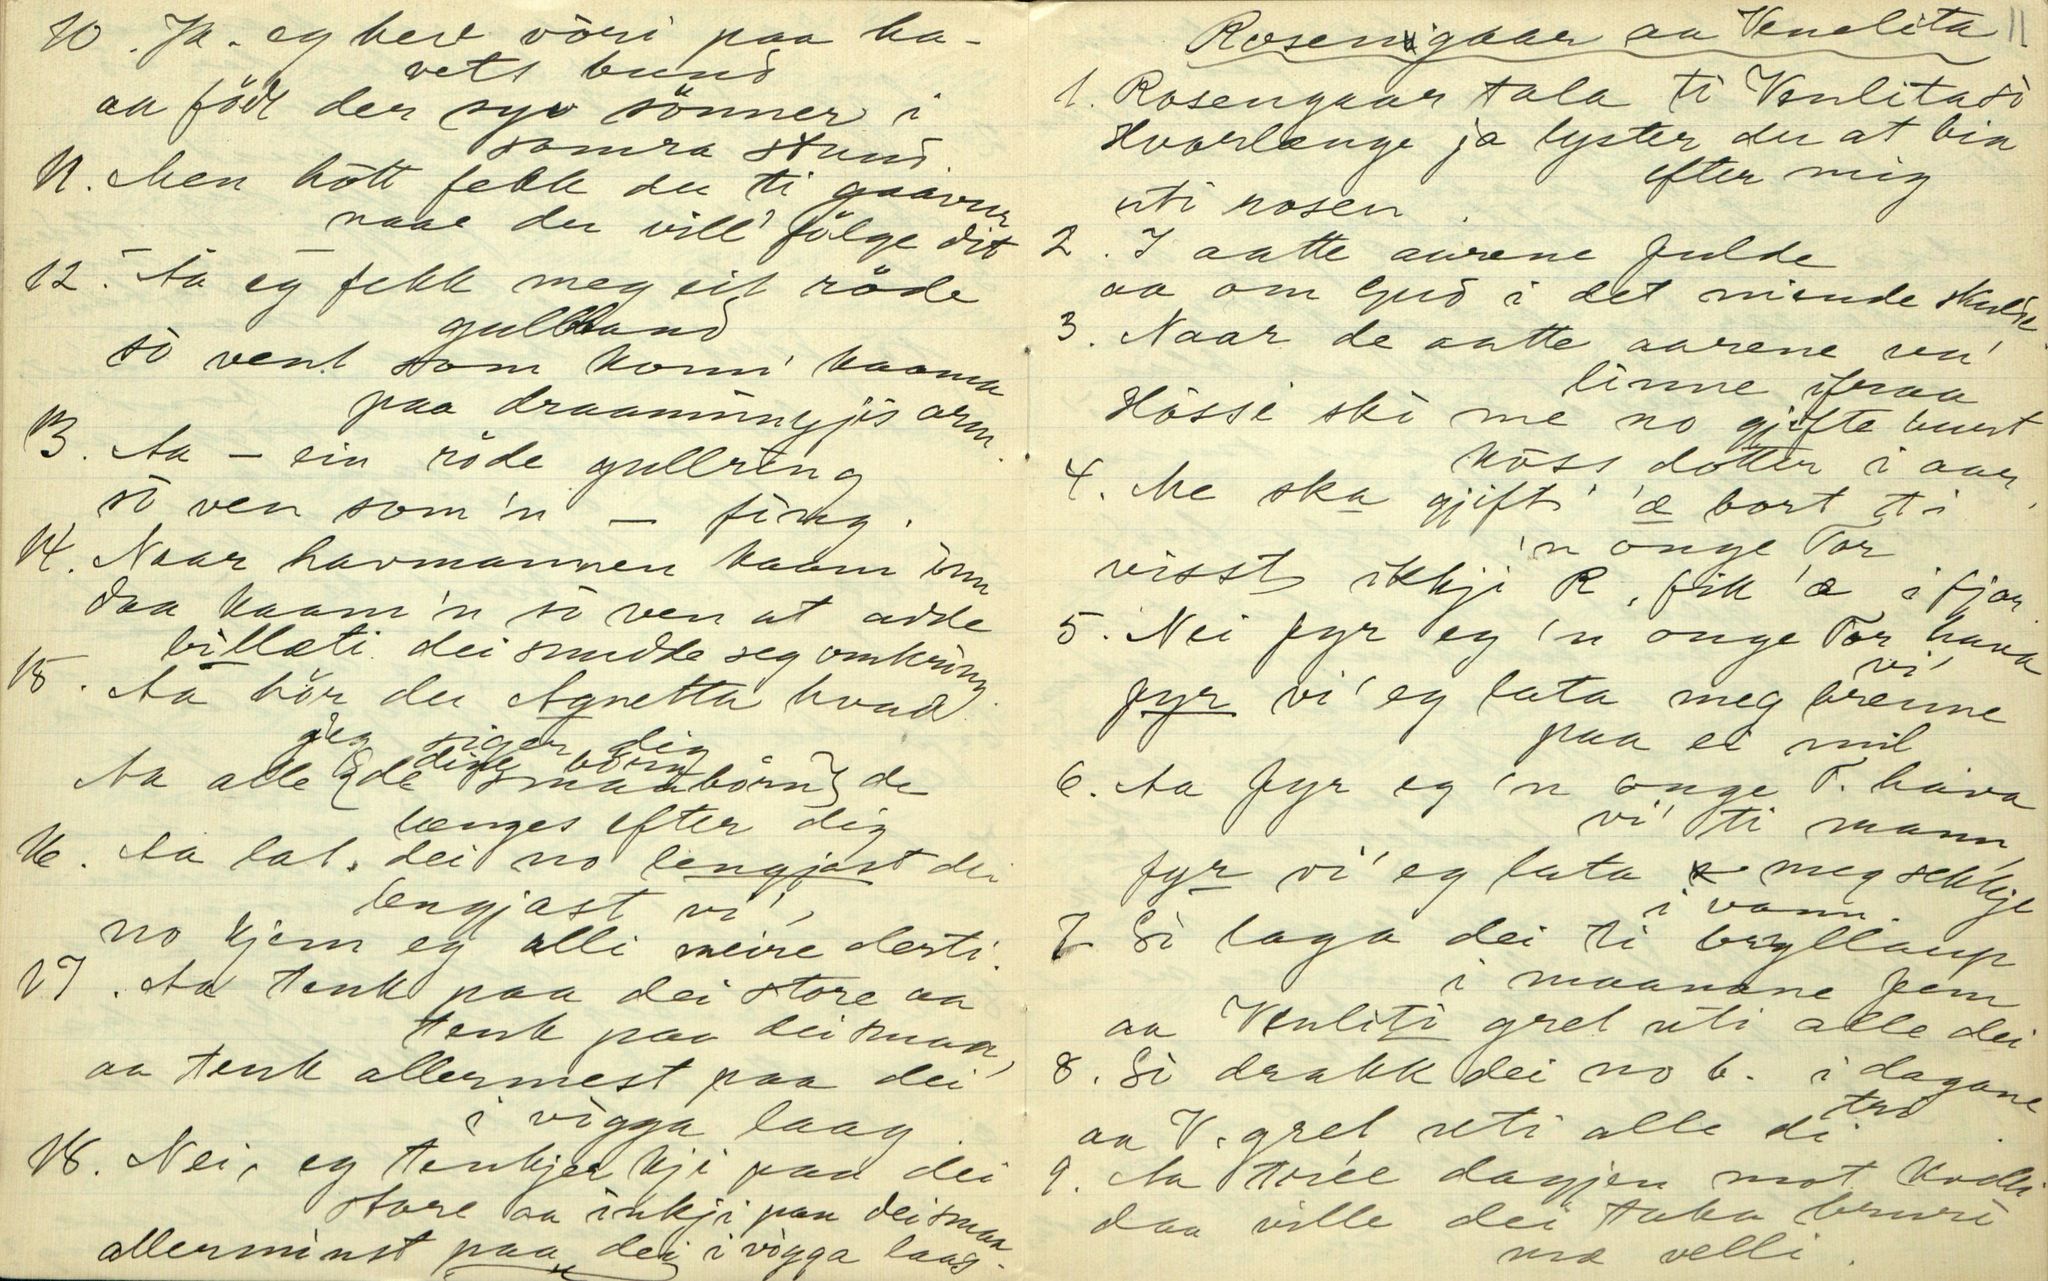 10. Ja. eg hev vöri paa ha-
vets bund
aa född der syv sönner i
samra stund.
11. Men hött fekk du ti gaavur
naar du vill' fölge dit
12. Aa eg fekk meg eit röde
gullband
sò vent som komi' kaama
paa draanningjis arm.
13. Aa – ein röde gullring
sò ven som 'n – fing.
14. Naar havmannen kaam inn
daa kaam 'n sò ven at adde
billæti dei snudde seg omkring.
15. Aa hör du Agnetta hvad
jeg siger dig
dine börn
Aa alle {de smaabörn} de
længes efter dig
16. Aa lat dei no lengjast dei
lengjast vi',
no kjem eg alli meire derti.
17. Aa tenk paa dei store aa
tenk paa dei smaa,
aa tenk allermest paa dei
i vigga laag.
18. Nei, eg tenkjer kji paa dei
store aa inkji paa dei smaa
allerminst paa dei i vigga laag.
11
Rosengaar aa Venelita
1. Rosengaar tala ti Venlita sò
Hvorlænge ja lyster du at bia
efter mig
uti rosen.
2. I aatte aarene fulde
aa om Gud i det niende skulde.
3. Naar de aatte aarene va'
linne ifraa
Hössi ski me no gjifte burt
köss dotter i aar.
4. Me ska gjift' 'æ bort ti
'n onge Tor
visst ikkji R. fik 'æ i fjor
5. Nei fyr eg 'n onge Tor hava
vi'
fyr vi' eg lata meg brenne
paa ei mil
6. Aa fyr eg 'n onge T. hava
vi' ti mann,
fyr vi' eg lata meg sekkje
i vann.
7 Sò laga dei ti bryllaup
i maanane fem
aa Venliti gret uti alle dei
8. Sò drakk dei no b. i dagane
tri
aa V. gret uti alle di.
9. Aa triée dagjen mot kvelli
daa ville dei taka bruri
mæ velli.